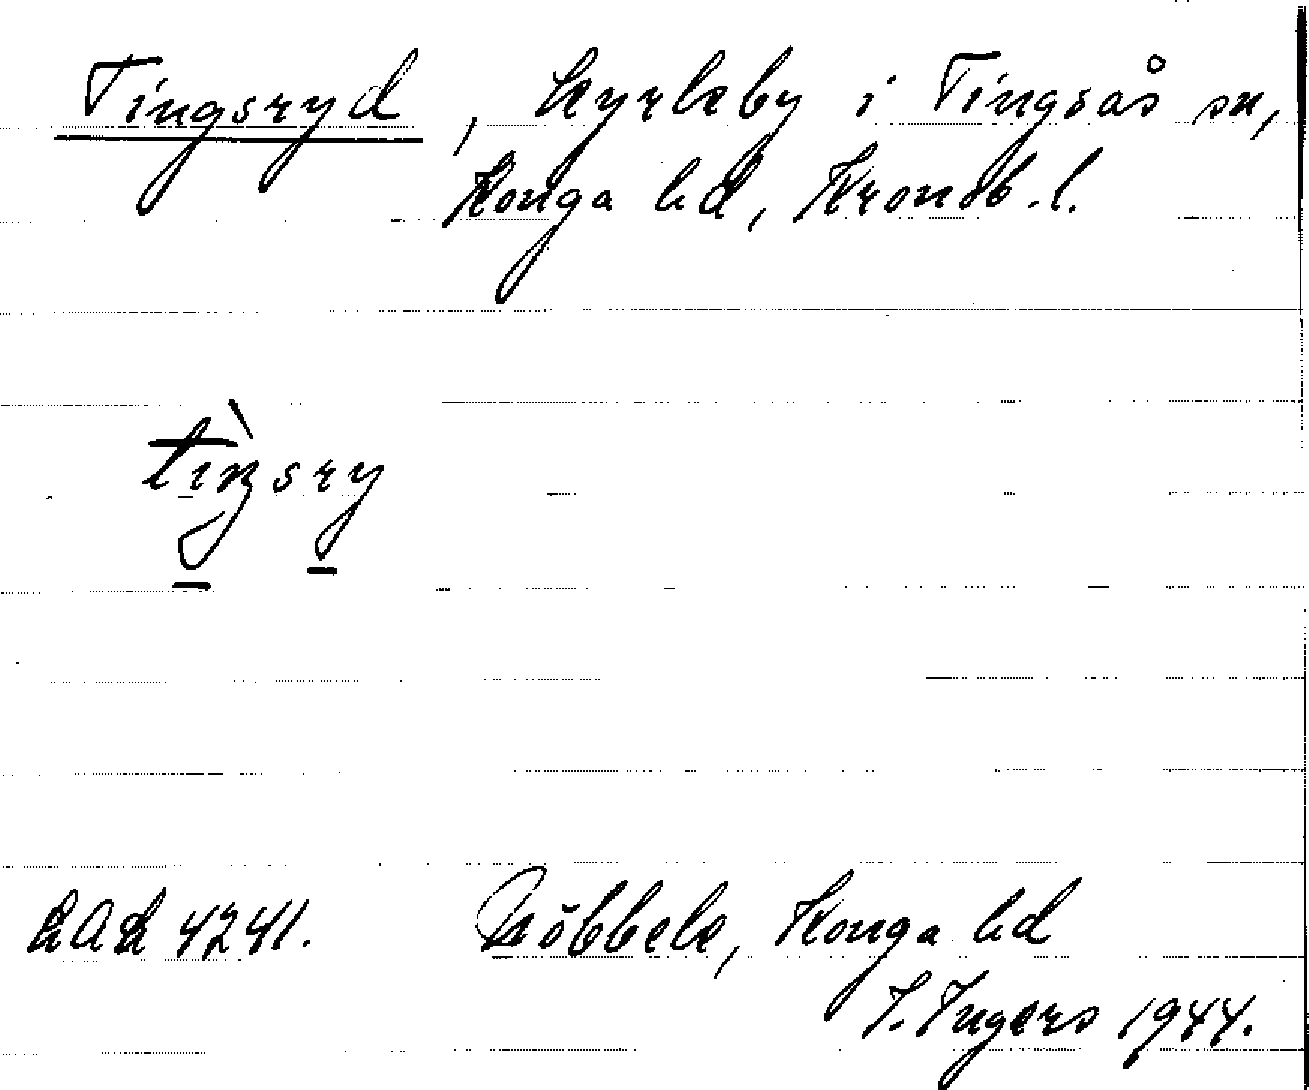 Tingsryd, kyrkby i Tingsås sn,
Konga hd, Kronob. l.
tiŋsry
LAL 4241. Nöbbele, Konga hd
I. Ingers 1944.